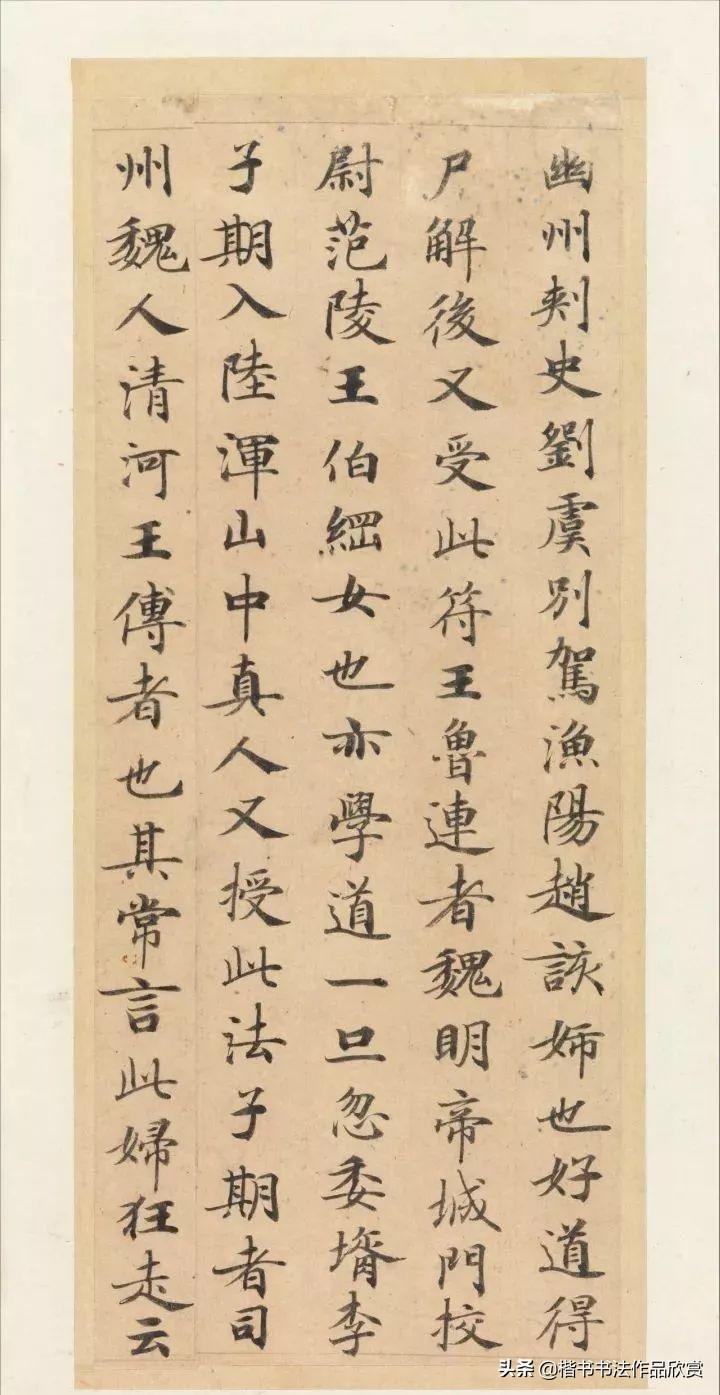 幽州刾史劉虞別駕漁陽趙該姉也好道得
尸解後又受此符王魯連者魏明帝城門校
尉范陵王伯綱女也亦學道一旦忽委壻李
子期入陸渾山中真人又授此法子期者司
州魏人清河王傅者也其常言此婦狂走云
头条 @楷书书法作品欣赏